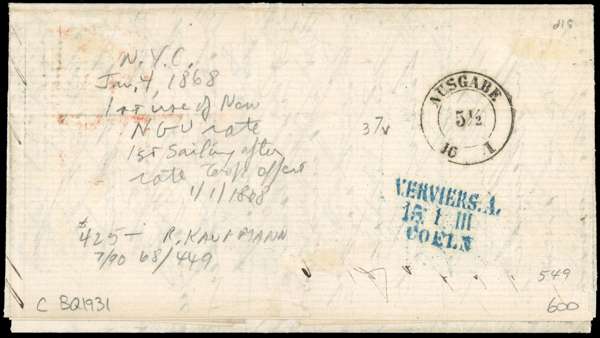 N.Y.C.
Jan. 4, 1868
1st use of New
NGU rate
1st Sailing after
rate took effect
1/1/1868
$425— R. KAUFMANN
7/90 68/449
C BQ1931
218
37
AUSGABE
5½
16 I
VERVIERS.A.
15 1 III
COELN
549
600